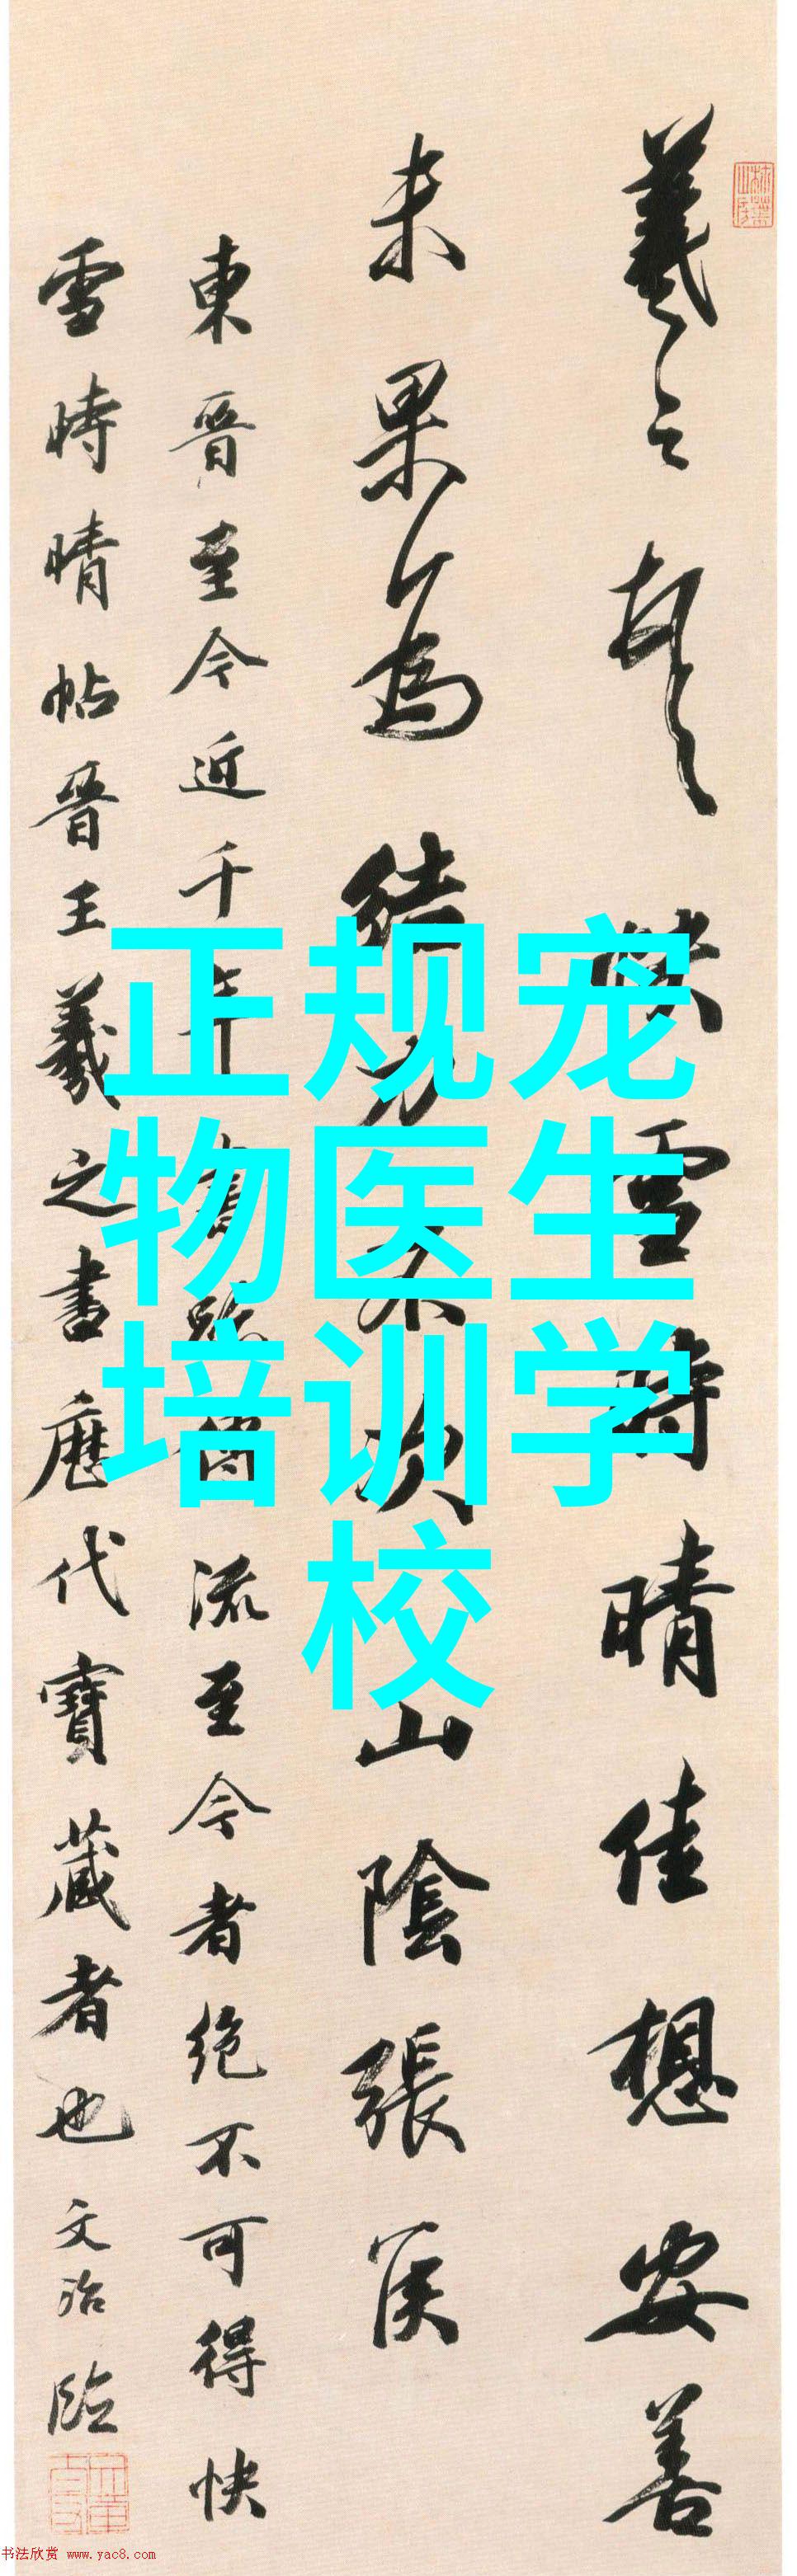 羲之頓首快雪時晴佳想安善
未果為結力不次山陰張侯
東晉至今近千年書跡傳流至今者絶不可得快
雪時晴帖晉王羲之書歷代寶藏者也文治臨
正规宠
物医生
培训学
校
书法欣赏 www.yac8.com